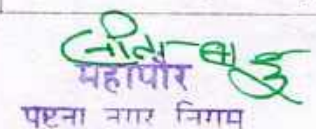 महापौर
पटना नगर निगम